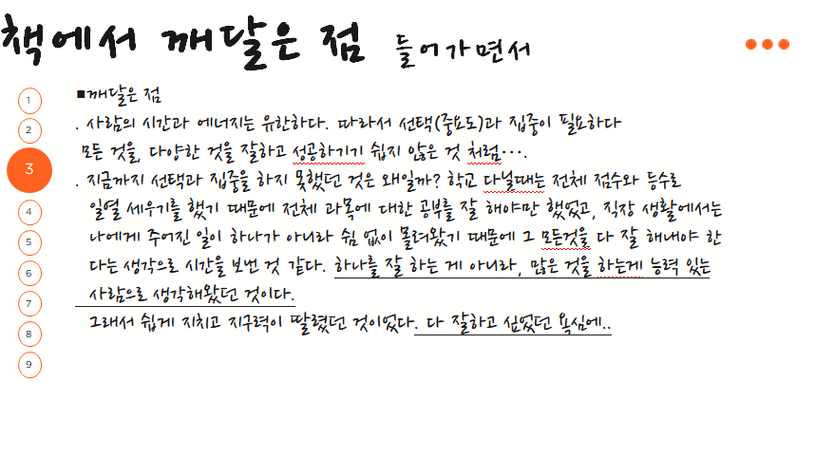 책에서 깨달은 점 들어가면서
1
■깨달은 점
. 사람의 시간과 에너지는 유한하다. 따라서 선택(중요도)과 집중이 필요하다
2
모든 것을, 다양한 것을 잘하고 성공하기기 쉽지 않은 것 처럼….
3
. 지금까지 선택과 집중을 하지 못했던 것은 왜일까? 학교 다닐때는 전체 점수와 등수로
4
일렬 세우기를 했기 때문에 전체 과목에 대한 공부를 잘 해야만 했었고, 직장 생활에서는
5
나에게 주어진 일이 하나가 아니라 쉼 없이 몰려왔기 때문에 그 모든것을 다 잘 해내야 한
6
다는 생각으로 시간을 보낸 것 같다. 하나를 잘 하는 게 아니라, 많은 것을 하는게 능력 있는
7
사람으로 생각해왔던 것이다.
8
그래서 쉽게 지치고 지구력이 딸렸던 것이었다. 다 잘하고 싶었던 욕심에..
9